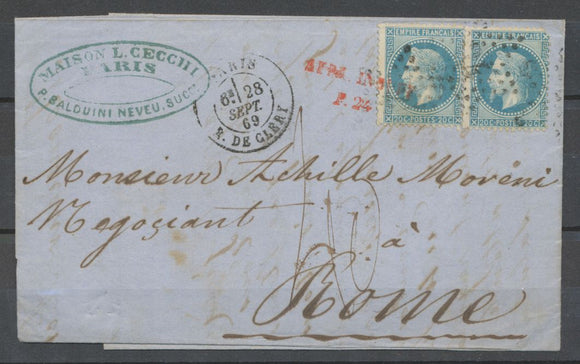 MAISON L. CECCHI
PARIS
P. BALDUINI NEVEU, SUCR
PARIS
6E 28
SEPT.
69
R. DE CLERY
F. 24
EMPIRE FRANÇAIS
20 C. POSTES 20 C.
EMPIRE FRANÇAIS
20 C. POSTES 20 C.
Monsieur Achille Moreni
Negoziant
à
Rome